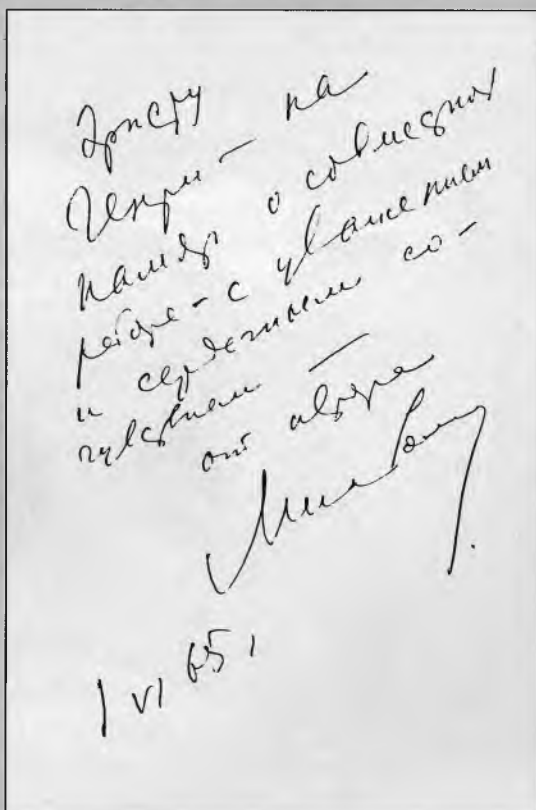 Эрнсту
Генри — на
память о совместной
работе — с уважением
и сердечным со-
чувствием —
от автора
1 VI 65.